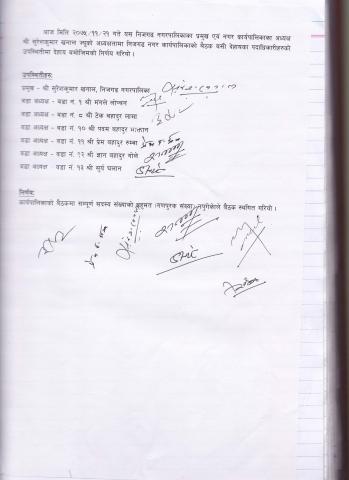 आज मिति २०७५/११/२१ गते यस निजगढ नगरपालिकाका प्रमुख एवं नगर कार्यपालिकाका अध्यक्ष
श्री सुरेशकुमार खनाल ज्यूको अध्यक्षतामा निजगढ नगर कार्यपालिकाको बैठक बसी देहायका पदाधिकारीहरुको
उपस्थितीमा देहाय बमोजिमको निर्णय गरियो ।
उपस्थितीहरु:
प्रमुख - श्री सुरेशकुमार खनाल, निजगढ नगरपालिका
वडा अध्यक्ष - वडा नं. १ श्री मंगले लोप्चन
वडा अध्यक्ष - वडा नं. ८ श्री टेक बहादुर लामा
वडा अध्यक्ष - वडा नं. १० श्री पदम बहादुर
वडा अध्यक्ष - वडा नं. ११ श्री प्रेम बहादुर रुम्बा
वडा अध्यक्ष - वडा नं. १२ श्री ज्ञान बहादुर गोले
वडा अध्यक्ष - वडा नं. १३ श्री सुर्य घलान
निर्णय:
कार्यपालिकाको बैठकमा सम्पूर्ण सदस्य संख्याको बहुमत (गणपुरक संख्या) नपुगेकोले बैठक स्थगित गरियो ।